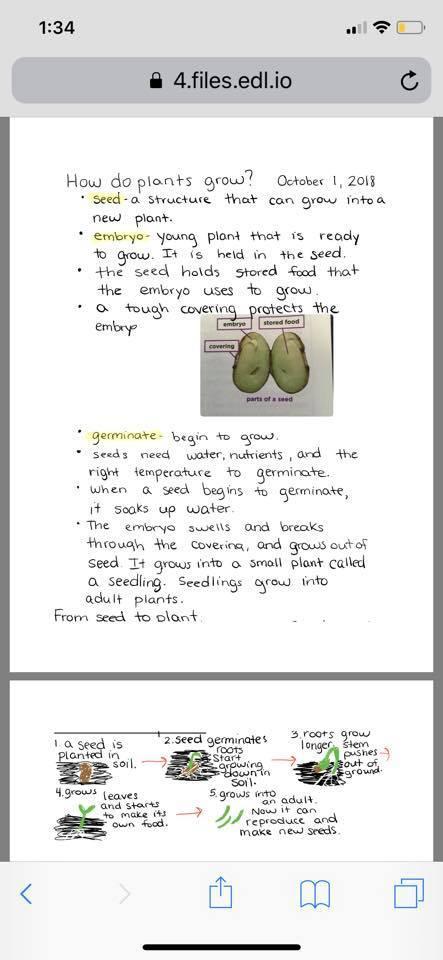 1:34
4.files.edl.io
How do plants grow? October 1, 2018
• seed - a structure that can grow into a
new plant.
• embryo - young plant that is ready
to grow. It is held in the seed.
• the seed holds stored food that
the embryo uses to grow.
• a tough covering protects the
embryo
embryo stored food
covering
parts of a seed
• germinate - begin to grow.
• seeds need water, nutrients, and the
right temperature to germinate.
• when a seed begins to germinate,
it soaks up water.
• The embryo swells and breaks
through the covering, and grows out of
seed. It grows into a small plant called
a seedling. Seedlings grow into
adult plants.
From seed to plant.
1. a seed is
planted in
soil.
2. seed germinates
roots
start
growing
down in
soil.
3. roots grow
longer. stem
pushes
out of
ground.
4. grows leaves
and starts
to make its
own food.
5. grows into
an adult.
Now it can
reproduce and
make new seeds.